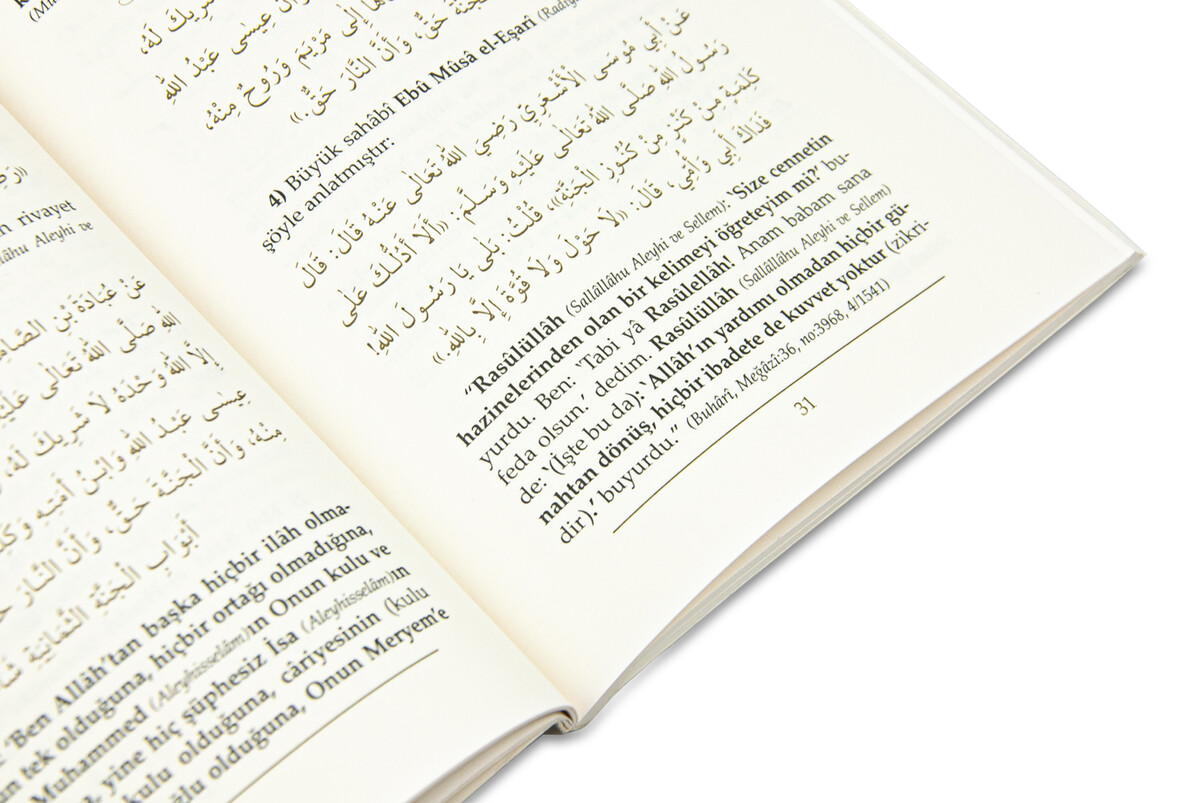 «رَضِ
rivayet
lâhu Aleyhi ve
عَنْ عُبَادَةَ بْنِ الصَّامِ
اللهِ صَلَّى اللهُ تَعَالَى عَلَيْهِ
إِلَّا اللهُ وَحْدَهُ لَا شَرِيكَ لَهُ،
عِيسَى عَبْدُ اللهِ وَابْنُ أَمَتِهِ وَكَلِ
مِنْهُ، وَأَنَّ الْجَنَّةَ حَقٌّ، وَأَنَّ النَّارَ حَ
أَبْوَابِ الْجَنَّةِ الثَّمَانِيَةِ شَا
‘Ben Allâh’tan başka hiçbir ilâh olma-
tek olduğuna, hiçbir ortağı olmadığına,
Muhammed (Aleyhisselâm)ın Onun kulu ve
yine hiç şüphesiz İsa (Aleyhisselâm)ın
kulu olduğuna, câriyesinin (kulu
olduğuna, Onun Meryem’e
وَأَنَّ عِيسَى عَبْدُ اللهِ
إِلَى مَرْيَمَ وَرُوحٌ مِنْهُ،
حَقٌّ، وَأَنَّ النَّارَ حَقٌّ.»
4) Büyük sahâbî Ebû Mûsâ el-Eşarî
şöyle anlatmıştır:
عَنْ أَبِي مُوسَى الْأَشْعَرِيِّ رَضِيَ اللهُ تَعَالَى عَنْهُ قَالَ: قَالَ
رَسُولُ اللهِ صَلَّى اللهُ تَعَالَى عَلَيْهِ وَسَلَّمَ: «أَلَا أَدُلُّكَ عَلَى
كَلِمَةٍ مِنْ كَنْزٍ مِنْ كُنُوزِ الْجَنَّةِ»، قُلْتُ: بَلَى يَا رَسُولَ اللهِ!
فَدَاكَ أَبِي وَأُمِّي، قَالَ: «لَا حَوْلَ وَلَا قُوَّةَ إِلَّا بِاللهِ.»
“Rasûlüllâh (Sallâllâhu Aleyhi ve Sellem): ‘Size cennetin
hazinelerinden olan bir kelimeyi öğreteyim mi?’ bu-
yurdu. Ben: ‘Tabi yâ Rasûlellâh! Anam babam sana
feda olsun.’ dedim. Rasûlüllâh (Sallâllâhu Aleyhi ve Sellem)
de: ‘(İşte bu da): ‘Allâh’ın yardımı olmadan hiçbir gü-
nahtan dönüş, hiçbir ibadete de kuvvet yoktur (zikri-
dir).’ buyurdu.” (Buhârî, Meğâzî:36, no:3968, 4/1541)
31